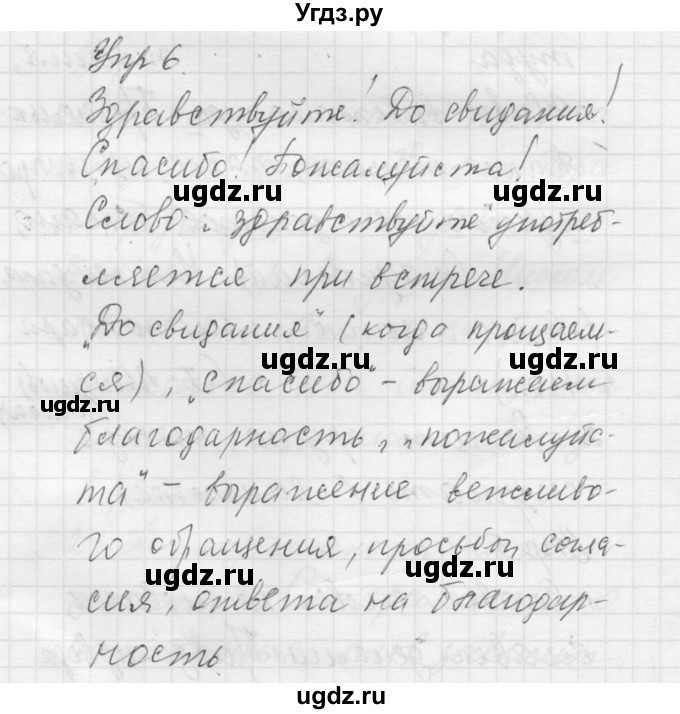 Угдз.ру
Упр 6.
Здравствуйте! До свидания!
Спасибо! Пожалуйста!
ugdz.ru ugdz.ru
Слово „здравствуйте" употреб-
ляется при встрече.
„До свидания" (когда прощаем-
ugdz.ru ugdz.ru
ся), „спасибо" – выражаем
ugdz.ru
благодарность, „пожалуйс-
та" – выражение вежливо-
го обращения, просьбы, согла-
ugdz.ru ugdz.ru
сия, ответа на благодар-
ность.
ugdz.ru